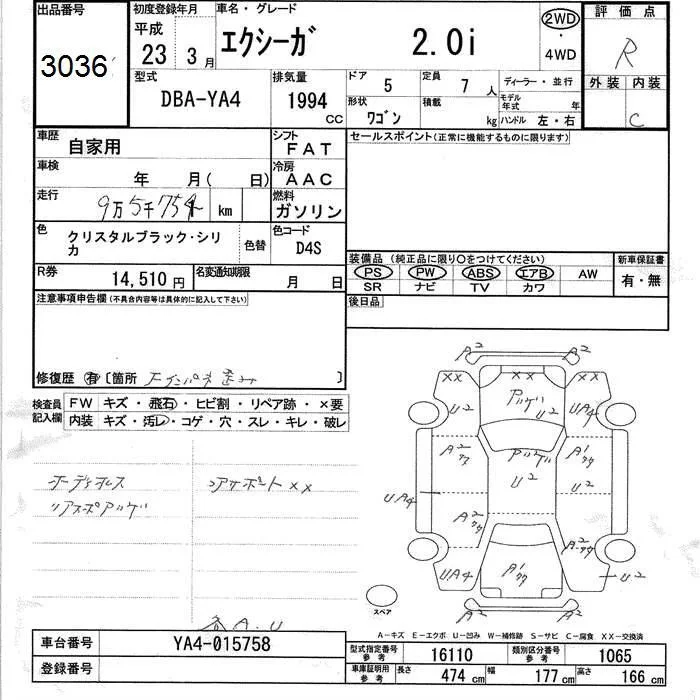 出品番号
3036
初度登録年月
平成
23 3月
車名・グレード
エクシーガ 2.0i
2WD
・
4WD
評価点
R
外装 内装
C
型式
DBA-YA4
排気量
1994 CC
ドア 5
定員 7人
ディーラー・並行
形状 ワゴン
積載 kg
モデル年式 年
ハンドル 左・右
車歴 自家用
シフト FAT
セールスポイント(正常に機能するものに限ります)
車検 年 月( 日)
冷房 AAC
走行 9万5千754 km
燃料 ガソリン
色 クリスタルブラック・シリカ
色替
色コード D4S
装備品 (純正品に限り○をつけてください)
新車保証書
PS PW ABS エアB AW
SR ナビ TV カワ
有・無
R券 14,510円
名変通知期限 月 日
後日品
注意事項申告欄(不具合内容等は具体的に記入して下さい)
修復歴 有 〔箇所 〕
検査員記入欄
FW キズ・飛石・ヒビ割・リペア跡・×要
内装 キズ・汚レ・コゲ・穴・スレ・キレ・破レ
オーディオレス
リアスポアツゲ
コアサポート××
各A.U
A2 A2
×× ×× ××
アツゲ U2
U2 UA4
A2 アツゲ A1
U2
UA4 U2
A2 A2
UA4 A1 U2
A2 A2
スペア
A-キズ E-エクボ U-凹み W-補修跡 S-サビ C-腐食 XX-交換済
車台番号 YA4-015758
登録番号
型式指定番号 参考 16110
類別区分番号 参考 1065
車庫証明用 参考 長さ 474cm 幅 177cm 高さ 166cm